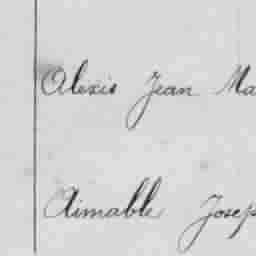 Alexis Jean Ma
Aimable Josep